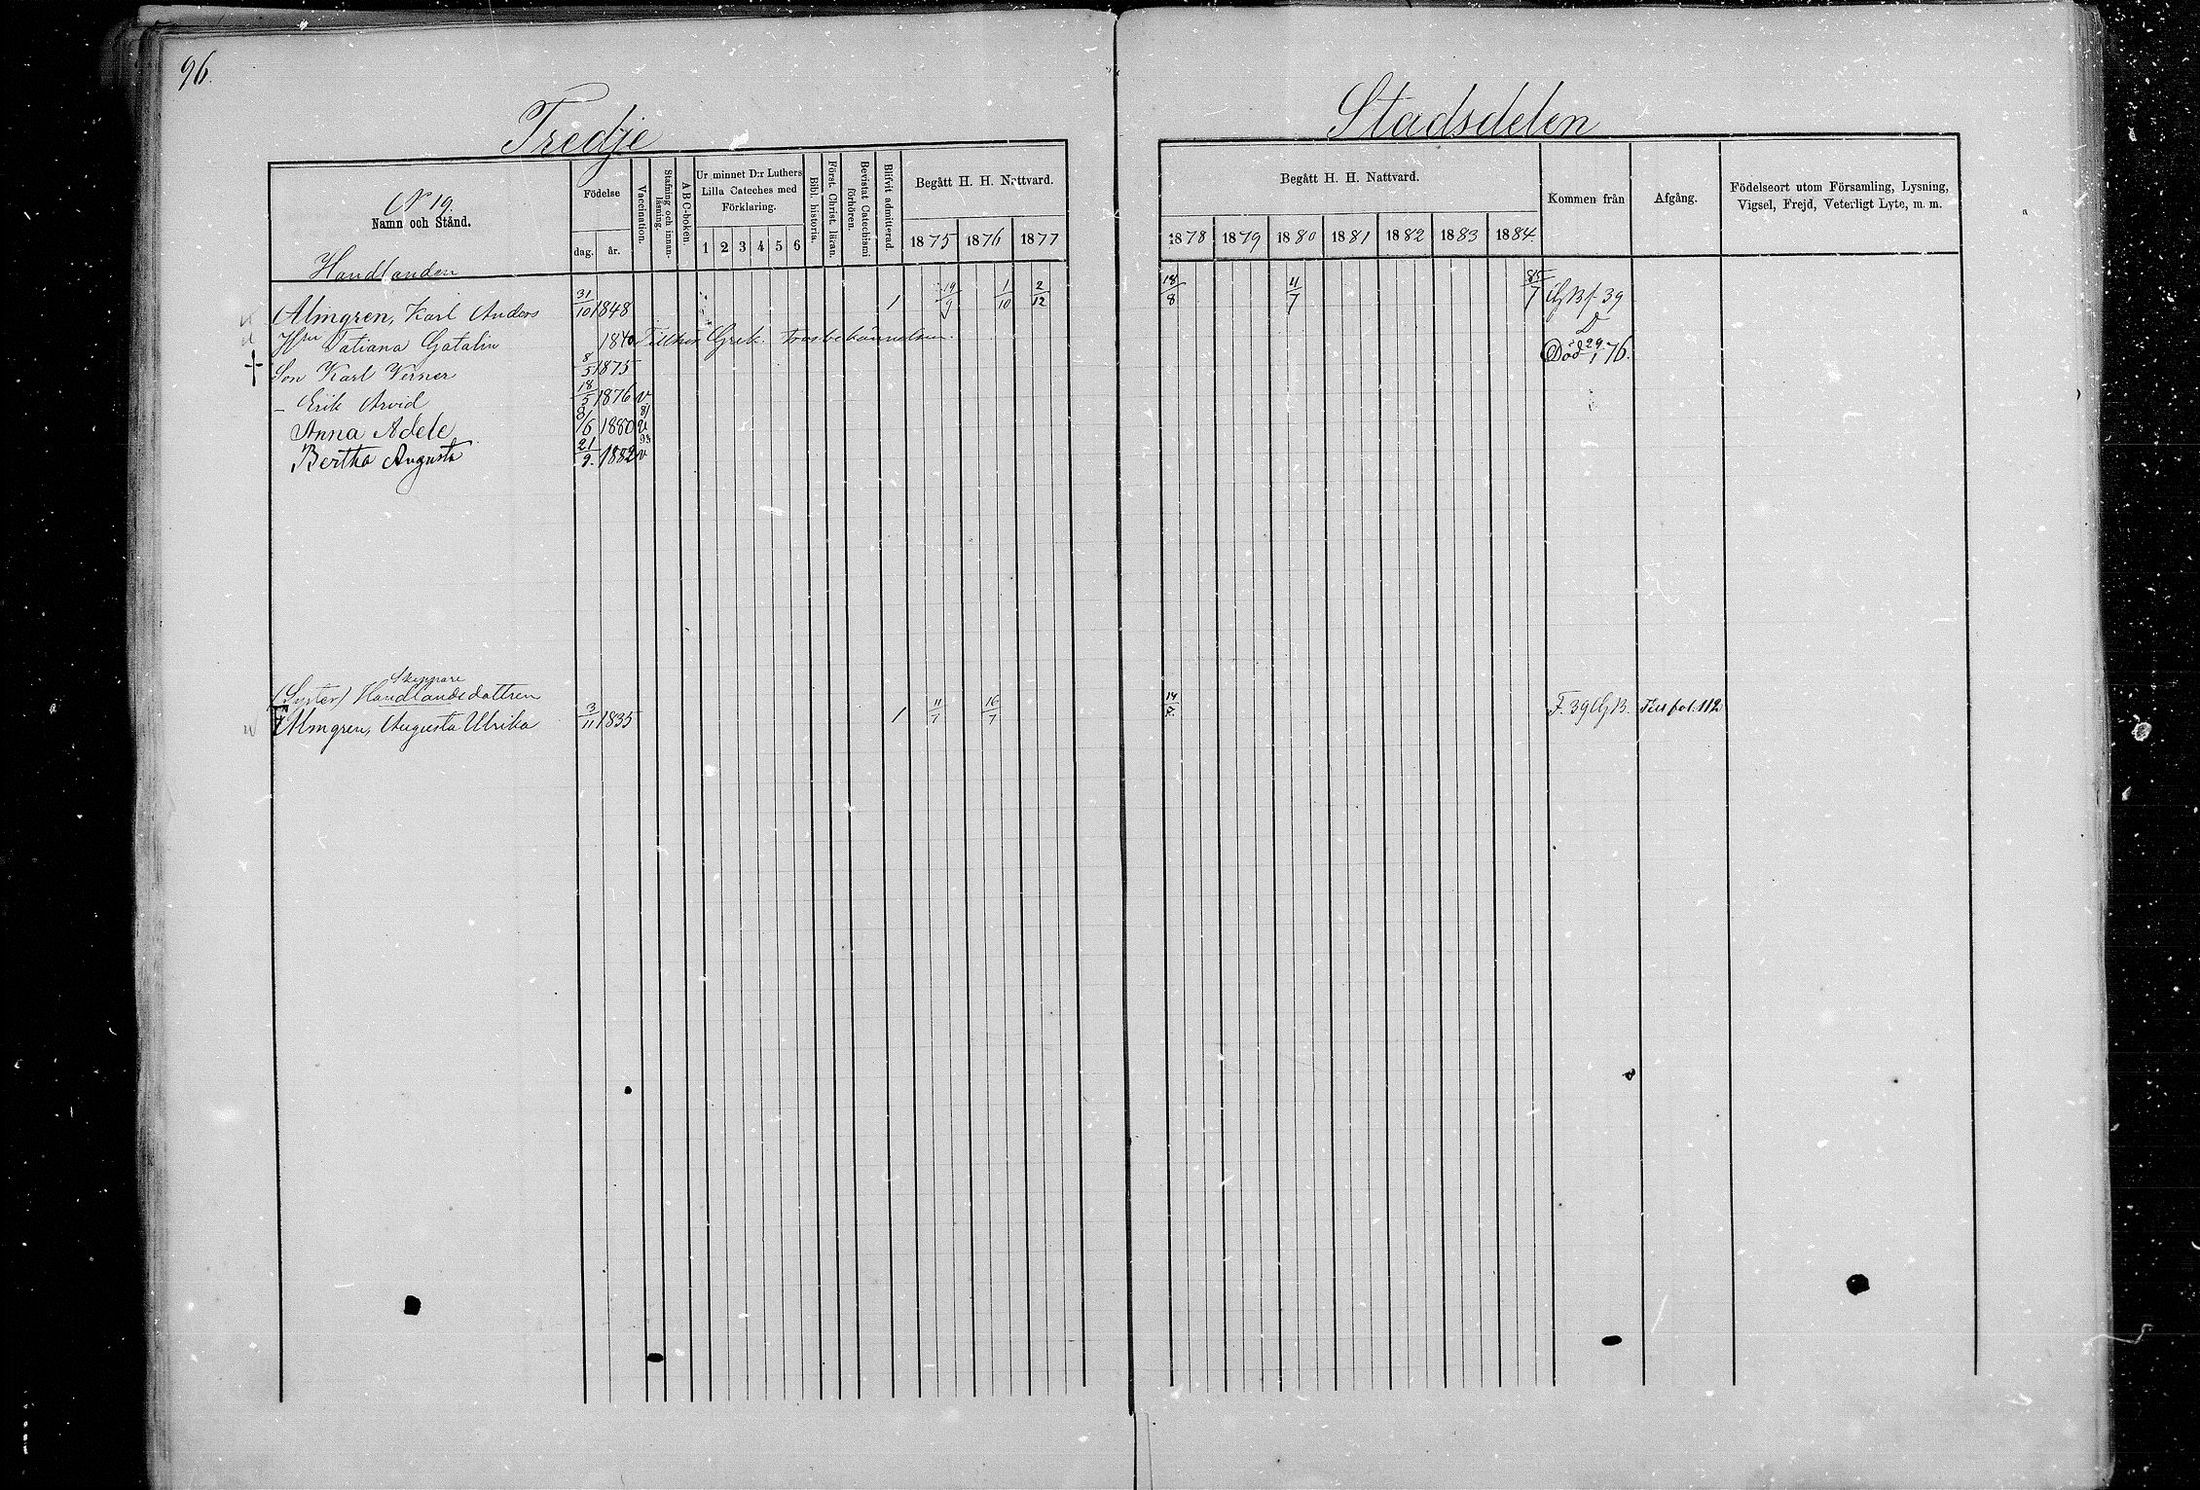 96.
Tredje Stadsdelen
N 19
Namn och Stånd.
Födelse
dag. år.
Vaccination.
Stafning och innanläsning.
ABC-boken.
Ur minnet D:r Luthers Lilla Cateches med Förklaring.
1 2 3 4 5 6
Bibl. historia.
Först. Christ. läran.
Bevistat Catechismi förhören.
Blifvit admitterad.
Begått H. H. Nattvard.
1875 1876 1877
Begått H. H. Nattvard.
1878 1879 1880 1881 1882 1883 1884.
Kommen från
Afgång.
Födelseort utom Församling, Lysning, Vigsel, Frejd, Veterligt Lyte, m. m.
Handlanden
Almgren, Karl Anders 31/10 1848 1 19/9 1/10 2/12 18/8 11/7 85/7 f. 39
Hstu Tatiana Gatalin 1840 Tillhör Grek. trosbekännelsen. D
Son Karl Verner 8/5 1875 Död 29/1 76.
- Erik Arvid 18/5 1876 v
Anna Adele 8/6 1880 81 v
Bertha Augusta 21/9. 1882 93 v
Skeppare
(Syster) Handlandsdottren
Almgren, Augusta Ulrika 3/11 1835 1 11/7 16/7 14/7 F. 39 GB. Till fol. 112